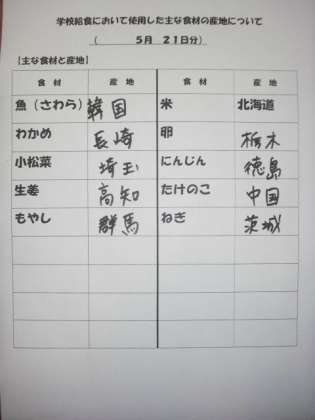 学校給食において使用した主な食材の産地について
( 5月 21日分)
【主な食材と産地】
食材 産地 食材 産地
魚(さわら) 韓国 米 北海道
わかめ 長崎 卵 栃木
小松菜 埼玉 にんじん 徳島
生姜 高知 たけのこ 中国
もやし 群馬 ねぎ 茨城